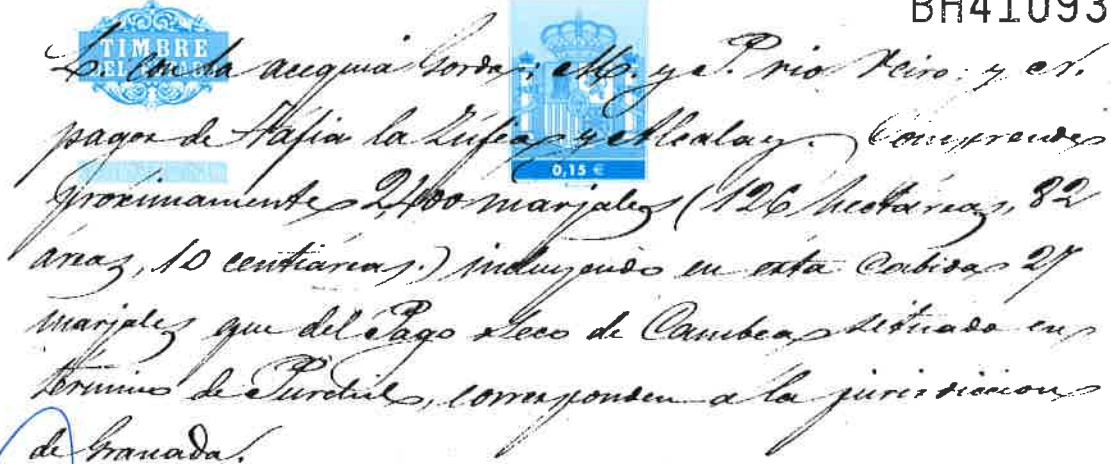 BH41093
TIMBRE
DEL ESTADO
L. con la acequia Gorda; M. y P. rio Beiro: y N.
pagos de Tafia la Zufea y Alcalay. Comprende
proximamente 2,400 marjales (126 hectáreas, 82
áreas, 10 centiáreas.) incluyendo en esta Cabida 27
marjales que del Pago Seco de Cambea situado en
término de Purchil, corresponden a la jurisdiccion
de Granada.
0,15 €